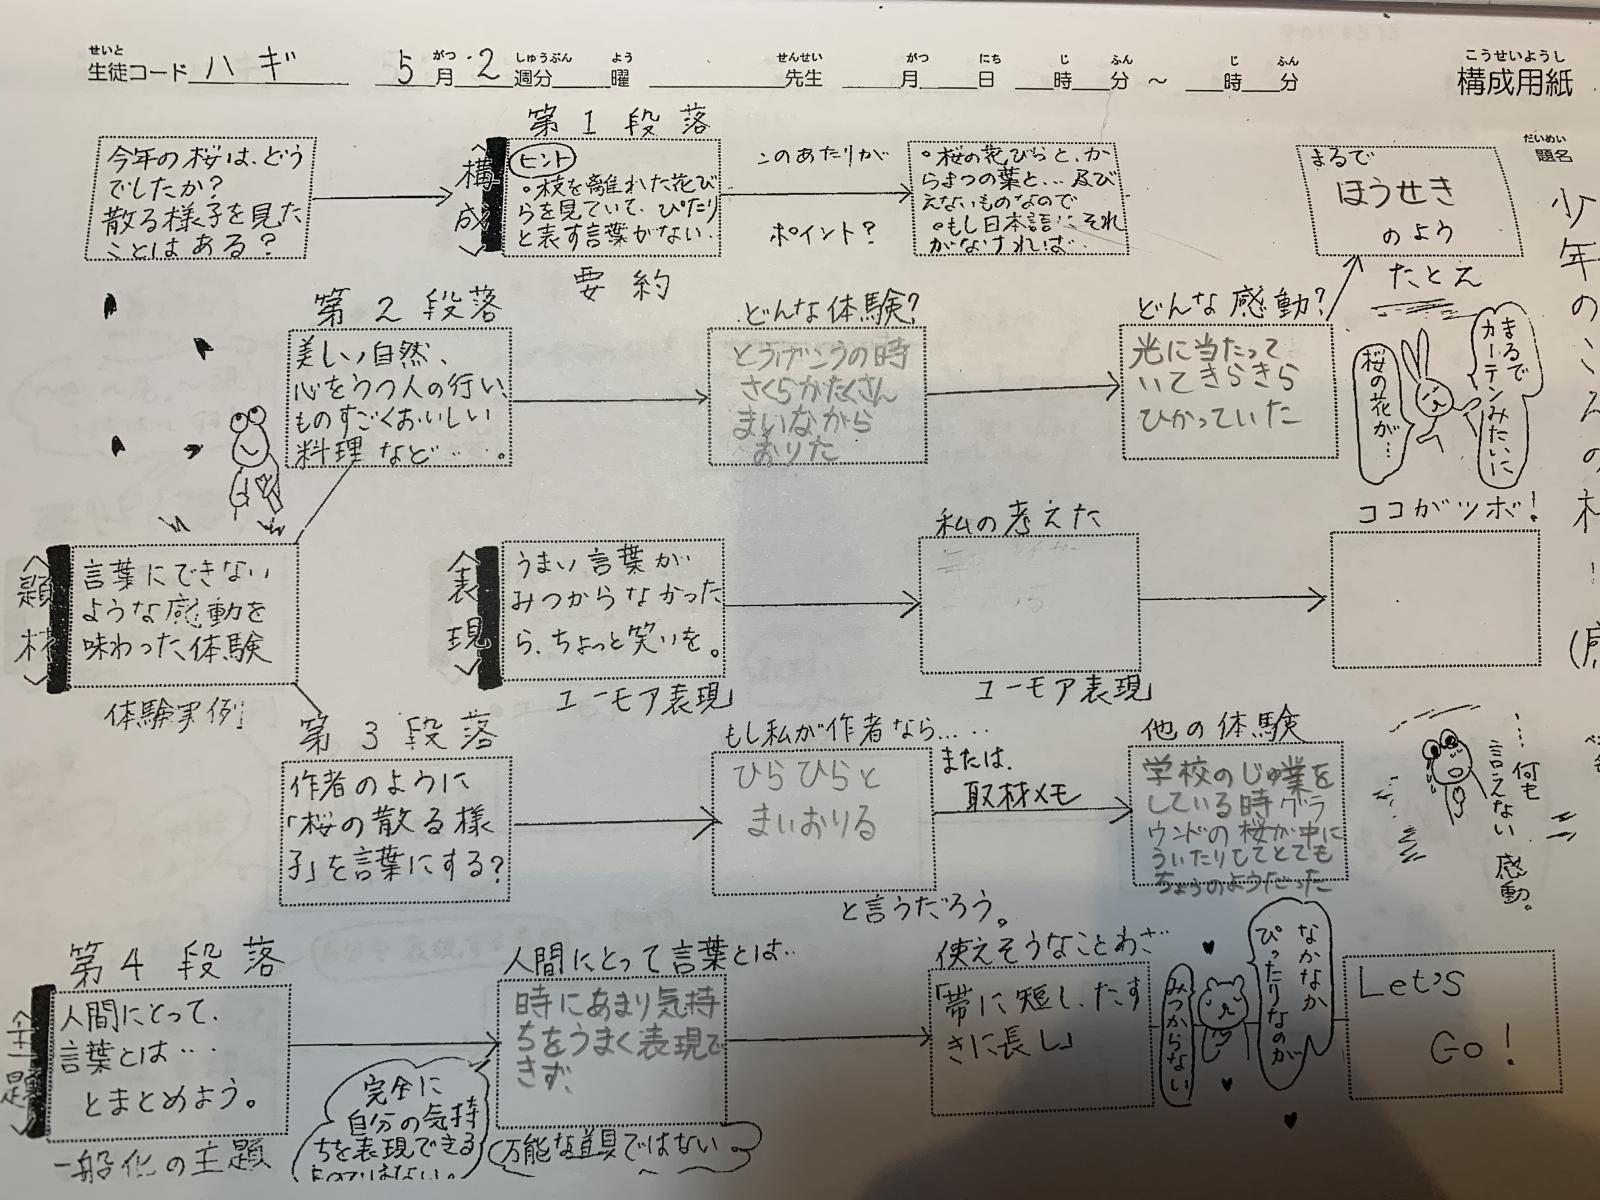 せいと
生徒コード ハギ
がつ しゅうぶん よう
5月 2週分 曜
せんせい
先生
がつ にち じ ふん じ ふん
月 日 時 分 ～ 時 分
こうせいようし
構成用紙
だいめい
題名
少年のころの
第1段落
今年の桜は、どう
でしたか？
散る様子を見た
ことはある？
〈構成〉
ヒント
。枝を離れた花び
らを見ていて、ぴたり
と表す言葉がない.
要約
このあたりが
ポイント？
。桜の花びらと、か
らまつの葉と…及び
えないものなので
。もし日本語にそれ
がなければ…
まるで
ほうせき
のよう
たとえ
第2段落
美しい自然、
心をうつ人の行い、
ものすごくおいしい
料理など…。
どんな体験？
とうげこうの時
さくらがたくさん
まいながら
おりた
どんな感動？
光に当たって
いてきらきら
ひかっていた
まるで
カーテンみたいに
桜の花が…
ココがツボ！
〈題材〉
言葉にできない
ような感動を
味わった体験
体験実例」
〈表現〉
うまい言葉が
みつからなかった
ら、ちょっと笑いを。
ユーモア表現」
私の考えた
ユーモア表現」
第3段落
作者のように
「桜の散る様
子」を言葉にする？
もし私が作者なら……
ひらひらと
まいおりる
と言うだろう。
または、
取材メモ
他の体験
学校のじゅ業を
している時グラ
ウンドの桜が中に
ういたりしてとても
ちょうのようだった
…何も
言えない
感動。
第4段落
〈主題〉
人間にとって、
言葉とは…
とまとめよう。
一般化の主題
人間にとって言葉とは…
時にあまり気持
ちをうまく表現で
きず、
完全に
自分の気持
ちを表現できる
ものではない。
万能な道具ではない
使えそうなことわざ
「帯に短し、たす
きに長し」
なかなか
ぴったりなのが
みつからない
Let's
Go!